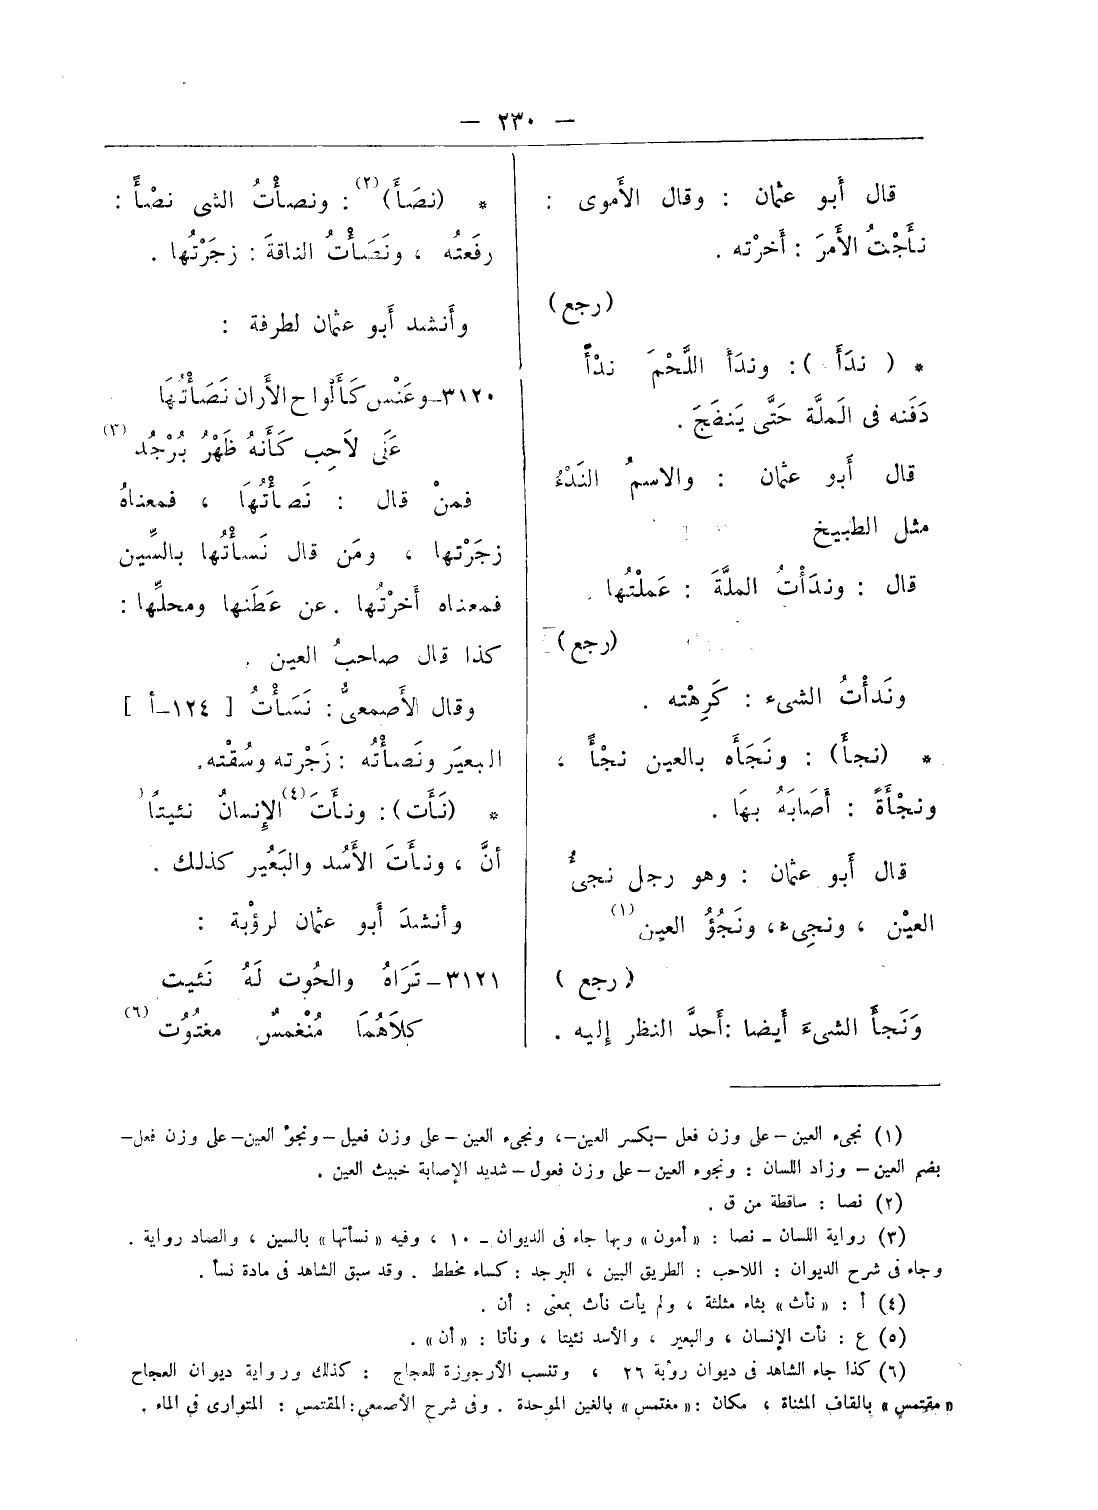 — ٢٣٠ —
قال أَبو عثمان : وقال الأَموى :
نأَجْتُ الأَمرَ : أَخرْته .
(رجع)
* ( ندَأَ ): وندَأَ اللَّحْمَ ندْأً
دَفَنه فى الَملَّة حَتَّى يَنضَجَ .
قال أَبو عثمان : والاسمُ النَدْءُ
مثل الطبيخ
قال : وندَأْتُ الملَّةَ : عَملْتُها .
(رجع)
ونَدأْتُ الشىء : كَرِهْته .
* (نجأَ) : ونَجَأَه بالعين نجْأً ،
ونجْأَةً : أَصَابَهُ بهَا .
قال أَبو عثمان : وهو رجل نجىُّ
العيْن ، ونجِىء، ونَجُؤُ العين (١)
( رجع )
وَنَجأَ الشىءَ أَيضا :أَحدَّ النظر إليه .
* (نصَأَ)(٢): ونصأْتُ الشى نصْأً :
رفَعتُه ، ونَصَأْتُ الناقةَ : زجَرْتُها .
وأَنشد أَبو عثمان لطرفة :
٣١٢٠–وعَنْس كَأَلْواح الأَران نَصَأْتُهَا
عَلَى لاَحِب كَأَنهُ ظَهْرُ بُرْجُد (٣)
فمنْ قال : نَصأْتُهَا ، فمعناهُ
زجَرْتها ، ومَن قال نَسأْتُها بالسِّين
فمعناه أَخرْتُها . عن عَطَنها ومحلِّها :
كذا قال صاحبُ العين .
وقال الأَصمعىُّ : نَسَأْتُ [ ١٢٤–أ ]
البعيَر ونَصأْتُه : زَجْرته وسُقْته.
* (نَأَت): ونأَتَ(٤)الإِنسانُ نئيتاً(
أنَّ ، ونأَتَ الأَسُد والبَعُير كذلك .
وأنشدَ أَبو عثمان لرؤْبة :
٣١٢١–تَرَاهُ والحُوت لَهُ نَئيت
كلاَهُمَا مُنْغمسٌ مغتوُت (٦)
(١) نجىء العين –على وزن فعل –بكسر العين–، ونجىء العين –على وزن فعيل –ونجؤ العين–على وزن فعل–
بضم العين– وزاد اللسان : ونجوء العين –على وزن فعول –شديد الإصابة خبيث العين .
(٢) نصا : ساقطة من ق .
(٣) رواية اللسان – نصا : «أمون» وبها جاء فى الديوان – ١٠ ، وفيه «نسأتها» بالسين ، والصاد رواية .
وجاء فى شرح الديوان : اللاحب : الطريق البين ، البرجد : كساء مخطط . وقد سبق الشاهد فى مادة نسأ .
(٤) أ : «نأث» بثاء مثلثة ، ولم يأت نأث بمعنى : أن .
(٥) ع : نأت الإنسان ، والبعير ، والأسد نئيتا ، ونأتا : «أن» .
(٦) كذا جاء الشاهد فى ديوان رؤبة ٢٦ ، وتنسب الأرجوزة للعجاج : كذلك ورواية ديوان العجاج
«مقتمس» بالقاف المثناة ، مكان :«مغتمس» بالغين الموحدة . وفى شرح الأصمعى:المقتمس : المتوارى فى الماء .